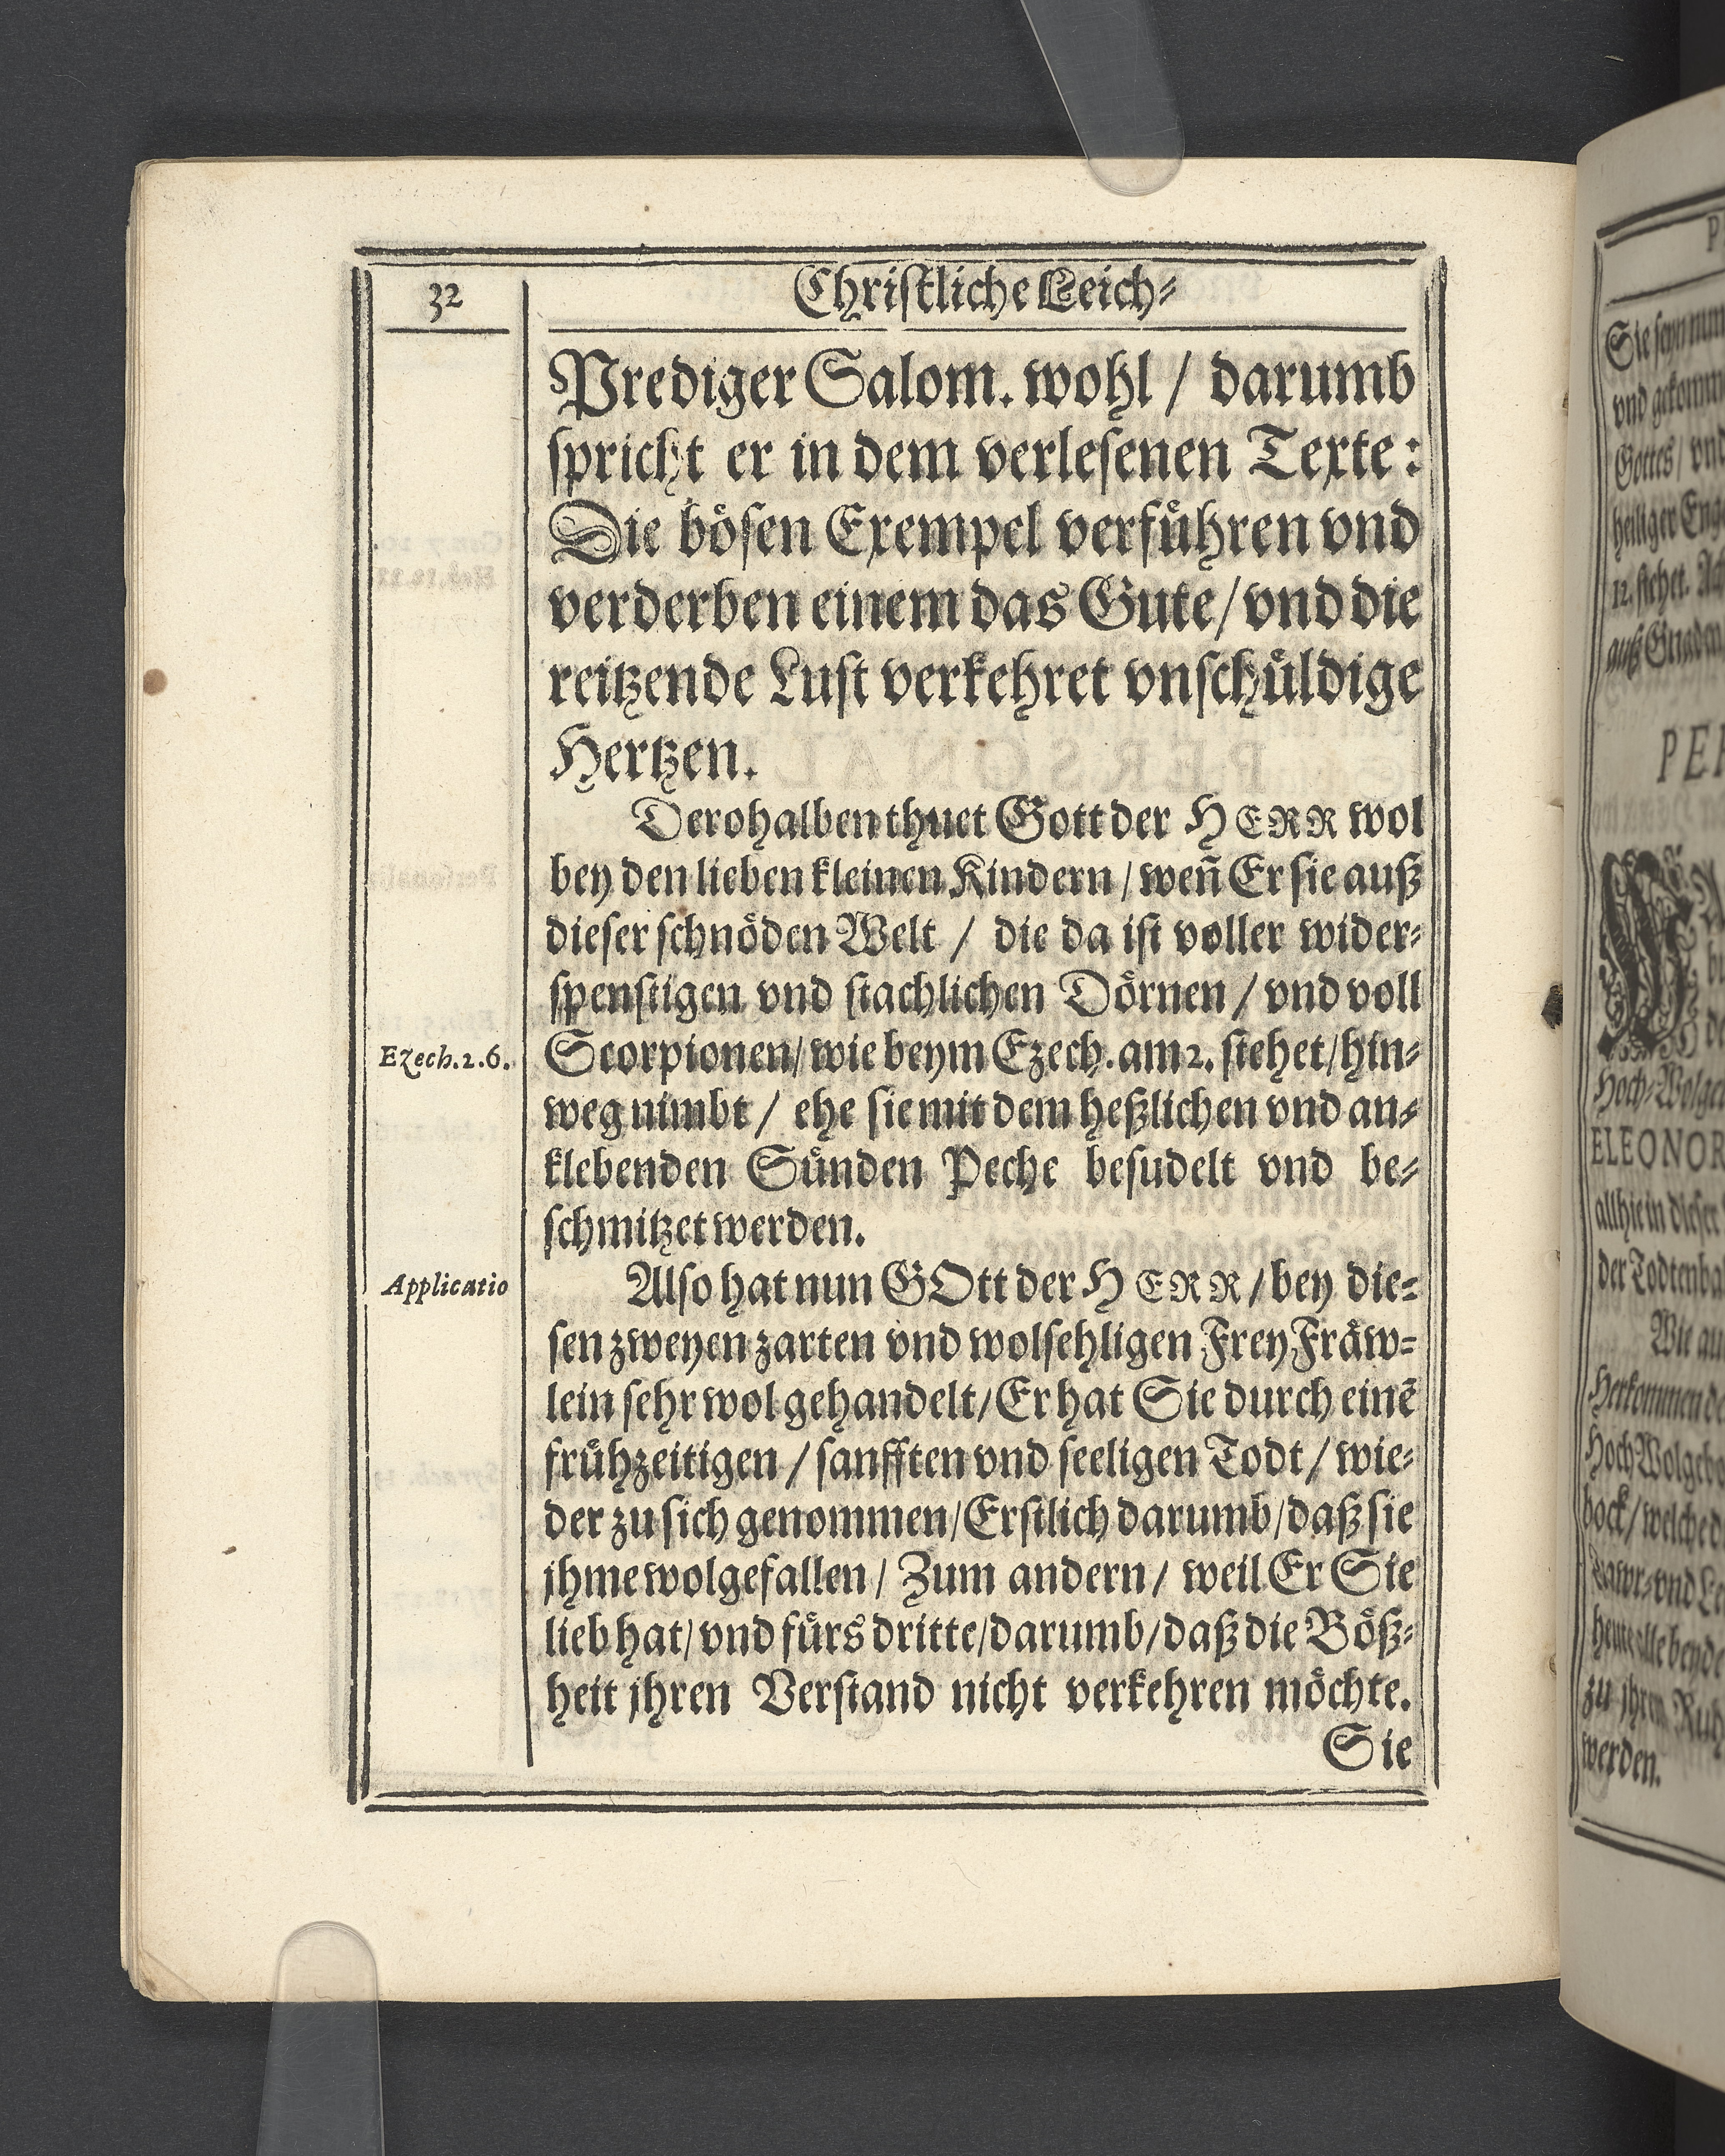 32
Christliche Leich-
Prediger Salom. wohl / darumb
spricht er in dem verlesenen Texte:
Die bösen Exempel verführen vnd
verderben einem das Gute / vnd die
reitzende Lust verkehret vnschüldige
Hertzen.
Derohalben thuet Gott der HERR wol
bey den lieben kleinen Kindern / wen̄ Er sie auß
dieser schnöden Welt / die da ist voller wider-
spenstigen vnd stachlichen Dörnen / vnd voll
Ezech. 2. 6.
Scorpionen / wie beym Ezech. am 2. stehet / hin-
weg nimbt / ehe sie mit dem heßlichen vnd an-
klebenden Sünden Peche besudelt vnd be-
schmitzet werden.
Applicatio
Also hat nun GOtt der HERR / bey die-
sen zweyen zarten vnd wolsehligen Frey Fräw-
lein sehr wol gehandelt / Er hat Sie durch einē
frühzeitigen / sanfften vnd seeligen Todt / wie-
der zu sich genommen / Erstlich darumb / daß sie
jhme wolgefallen / Zum andern / weil Er Sie
lieb hat / vnd fürs dritte / darumb / daß die Böß-
heit jhren Verstand nicht verkehren möchte.
Sie
Sie seyn
vnd
Gottes / vnd
heiliger
12. stehet.
auß Gnaden
ELEONOR
allhie in dieser
Wie
Herkommen
welche
zu jhrem
werden.